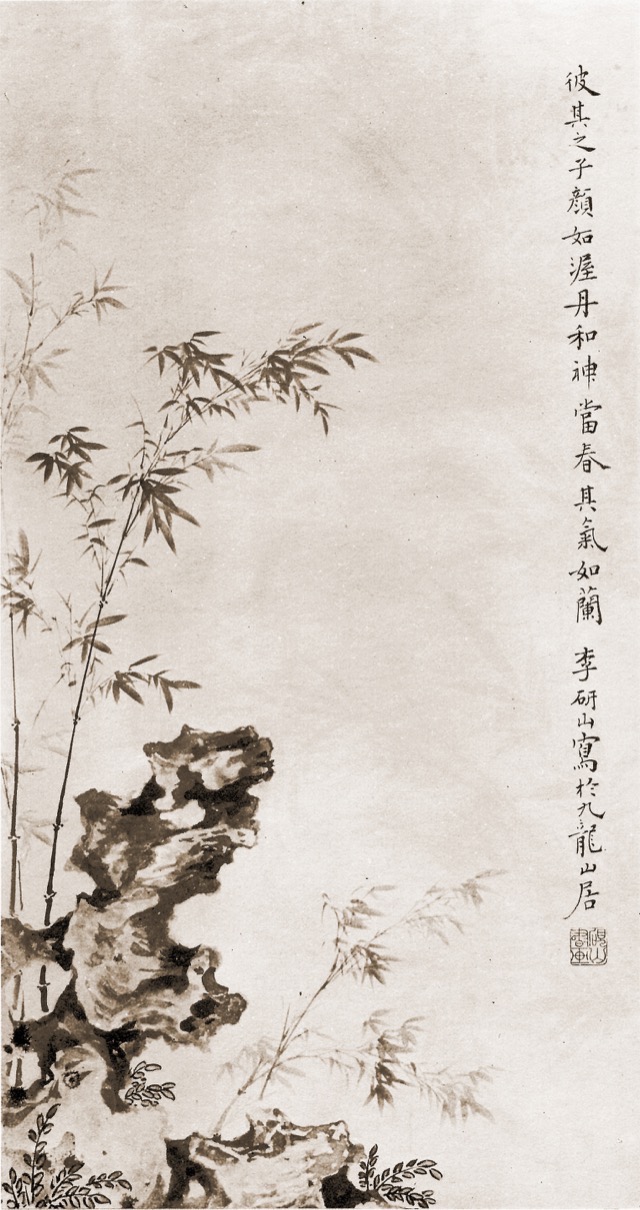 彼其之子顏如渥丹和神當春其氣如蘭 李研山寫於九龍山居